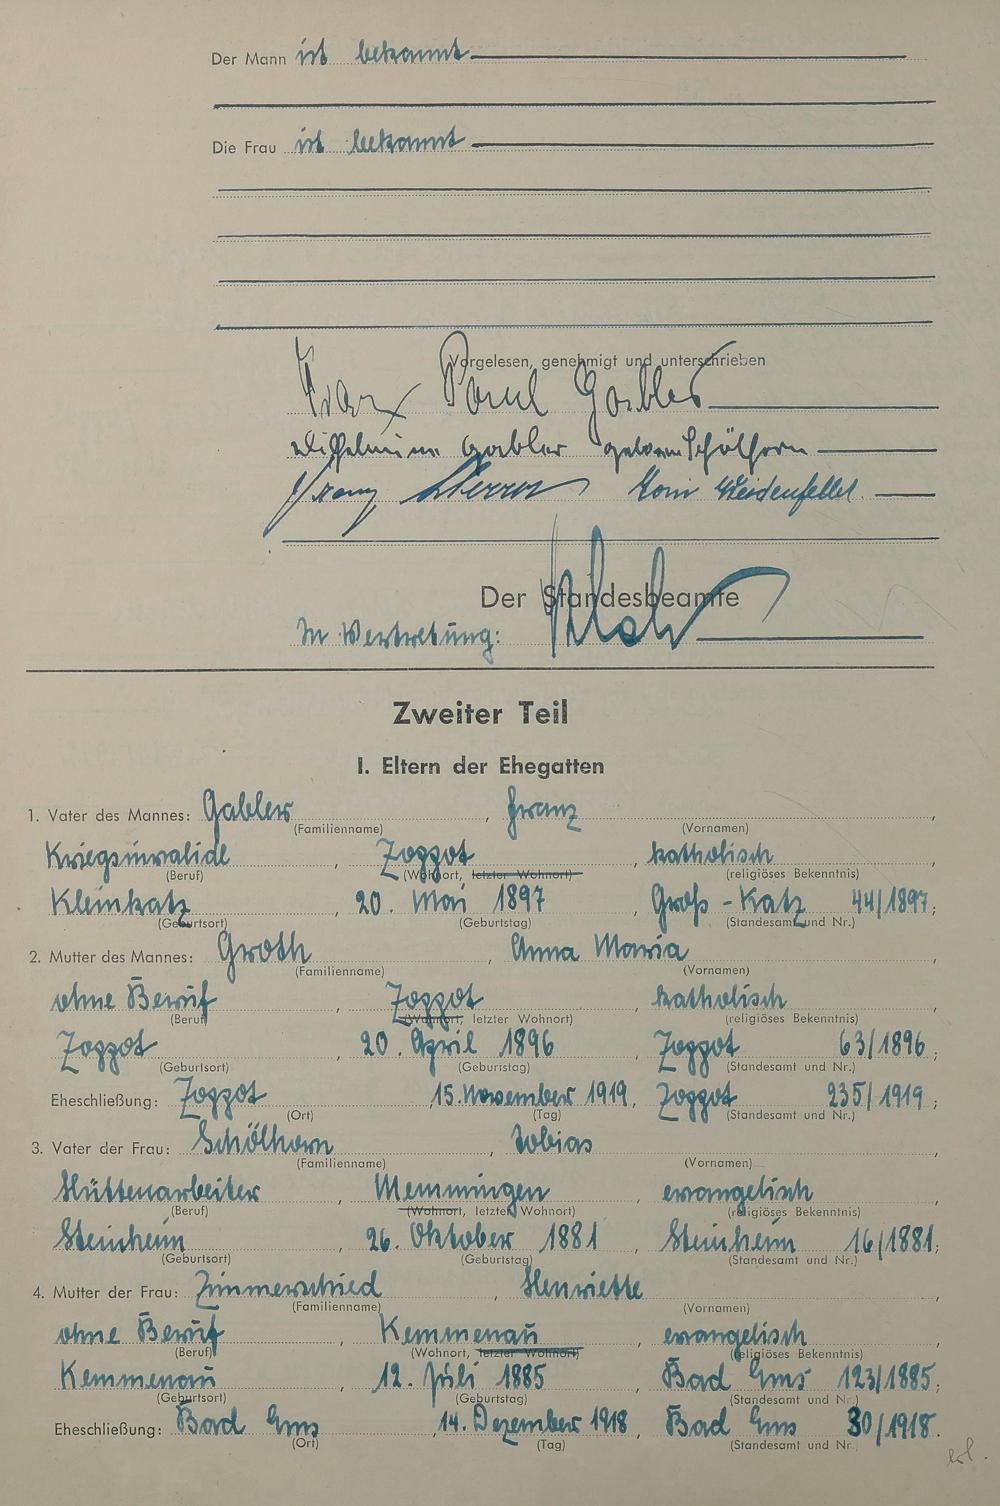 Der Mann ist bekannt
Die Frau ist bekannt
Vorgelesen, genehmigt und unterschrieben
Franz Paul Gabler
Wilhelmine Gabler geboren Schölhorn
Franz Toni Weidenfeller
Der Standesbeamte
In Vertretung:
Zweiter Teil
I. Eltern der Ehegatten
1. Vater des Mannes: Gabler, Franz,
(Familienname) (Vornamen)
Kriegsinvalide, Zoppot, katholisch,
(Beruf) (Wohnort, letzter Wohnort) (religiöses Bekenntnis)
Kleinkatz, 20. Mai 1897, Groß-Katz 44/1897;
(Geburtsort) (Geburtstag) (Standesamt und Nr.)
2. Mutter des Mannes: Groth, Anna Maria,
(Familienname) (Vornamen)
ohne Beruf, Zoppot, katholisch,
(Beruf) (Wohnort, letzter Wohnort) (religiöses Bekenntnis)
Zoppot, 20. April 1896, Zoppot 63/1896;
(Geburtsort) (Geburtstag) (Standesamt und Nr.)
Eheschließung: Zoppot, 15. November 1919, Zoppot 235/1919;
(Ort) (Tag) (Standesamt und Nr.)
3. Vater der Frau: Schölhorn, Tobias,
(Familienname) (Vornamen)
Hüttenarbeiter, Memmingen, evangelisch,
(Beruf) (Wohnort, letzter Wohnort) (religiöses Bekenntnis)
Steinheim, 26. Oktober 1881, Steinheim 16/1881;
(Geburtsort) (Geburtstag) (Standesamt und Nr.)
4. Mutter der Frau: Zimmerschied, Henriette,
(Familienname) (Vornamen)
ohne Beruf, Kemmenau, evangelisch,
(Beruf) (Wohnort, letzter Wohnort) (religiöses Bekenntnis)
Kemmenau, 12. Juli 1885, Bad Ems 123/1885;
(Geburtsort) (Geburtstag) (Standesamt und Nr.)
Eheschließung: Bad Ems, 14. Dezember 1918, Bad Ems 30/1918.
(Ort) (Tag) (Standesamt und Nr.)